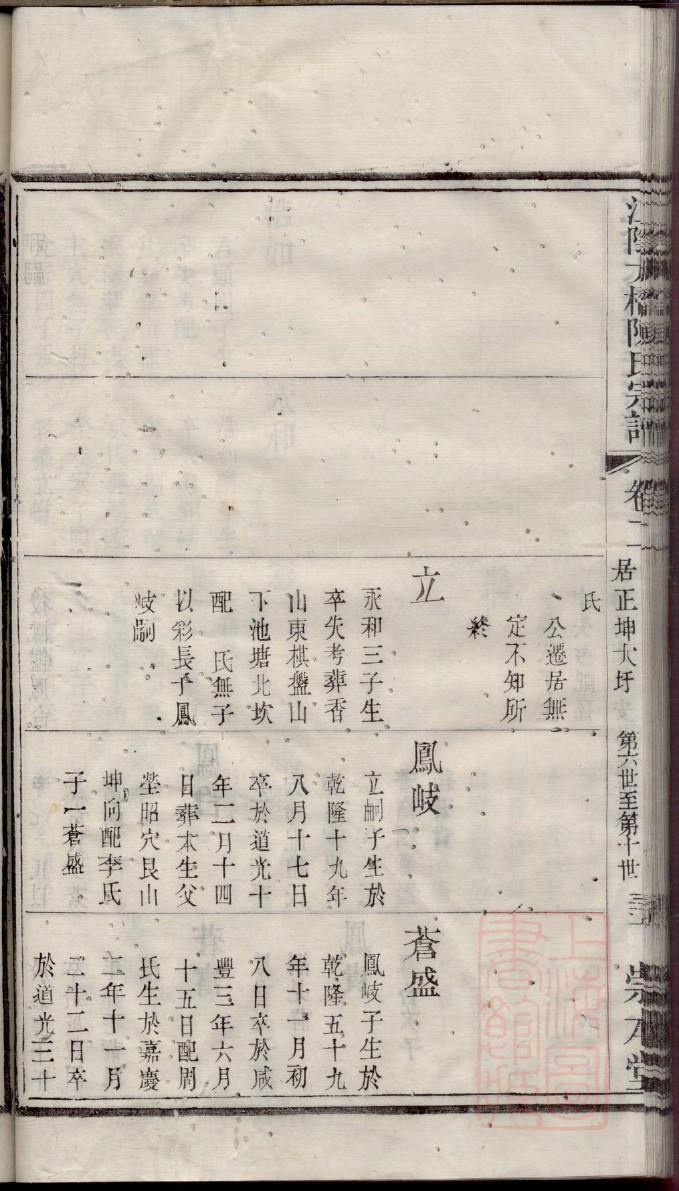 江陰大橋陳氏宗譜
卷二
居正坤大圩
第六世至第十世
崇本堂
氏
公遷居無
定不知所
終
立
永和三子生
卒失考葬香
山東棋盤山
下池塘北坎
配　氏無子
以彩長子鳳
岐嗣
鳳岐
立嗣子生於
乾隆十九年
八月十七日
卒於道光十
年二月十四
日葬本生父
塋昭穴艮山
坤向配李氏
子一蒼盛
蒼盛
鳳岐子生於
乾隆五十九
年十一月初
八日卒於咸
豐三年六月
十五日配周
氏生於嘉慶
二年十一月
二十二日卒
於道光三十